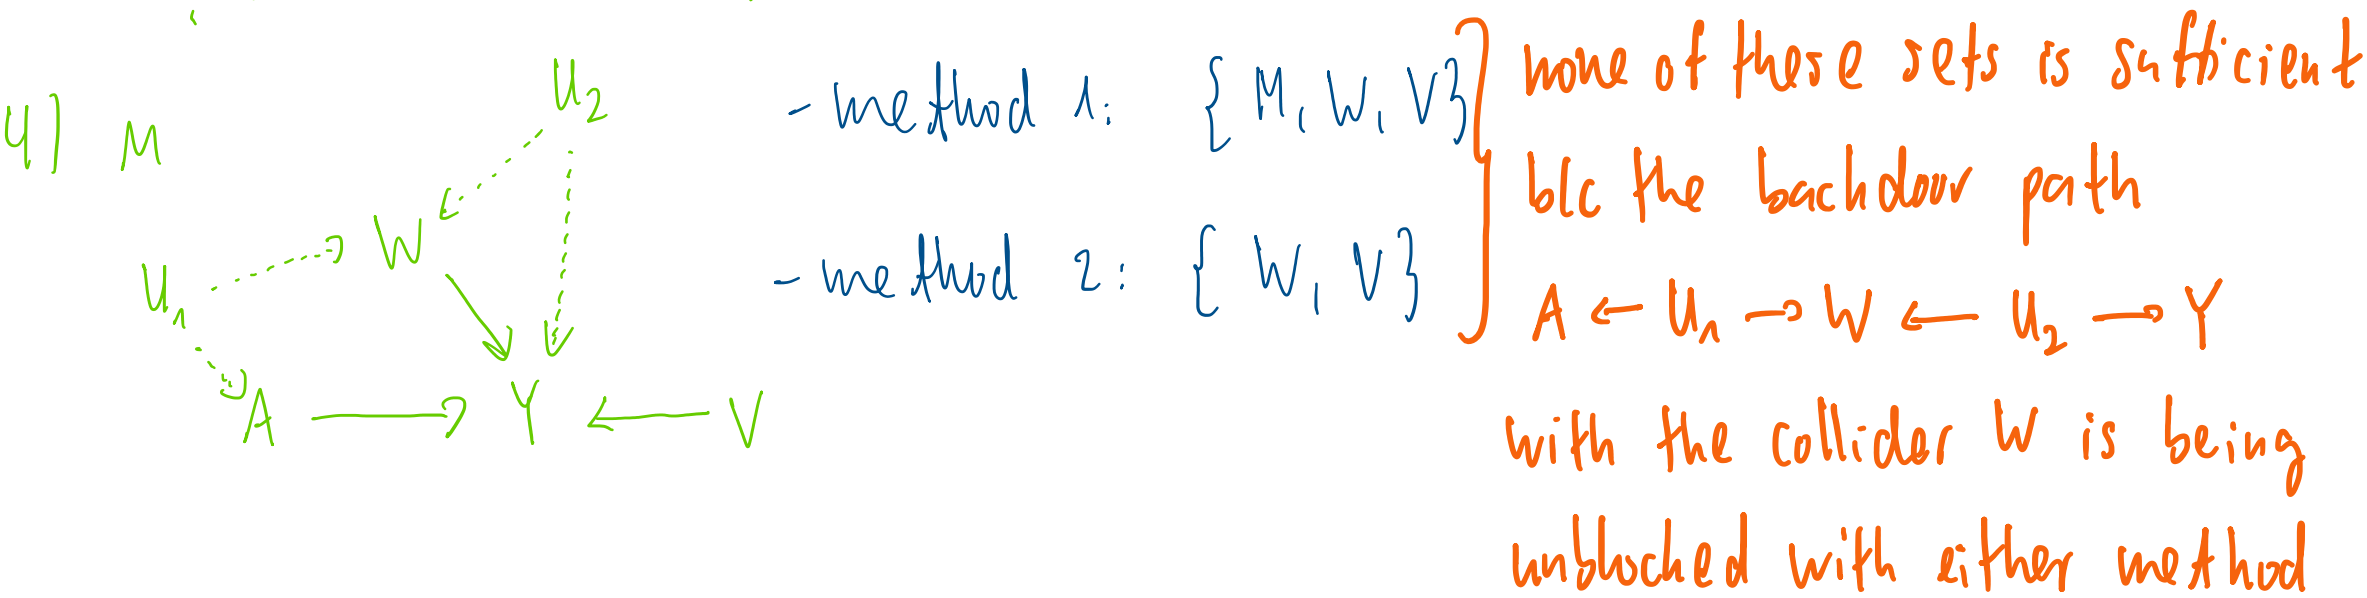 4) M
U2
W
U1
A → Y ← V
- method 1: { M, W, V}
- method 2: { W, V}
none of these sets is sufficient
b/c the backdoor path
A ← U1 → W ← U2 → Y
with the collider W is being
unblocked with either method